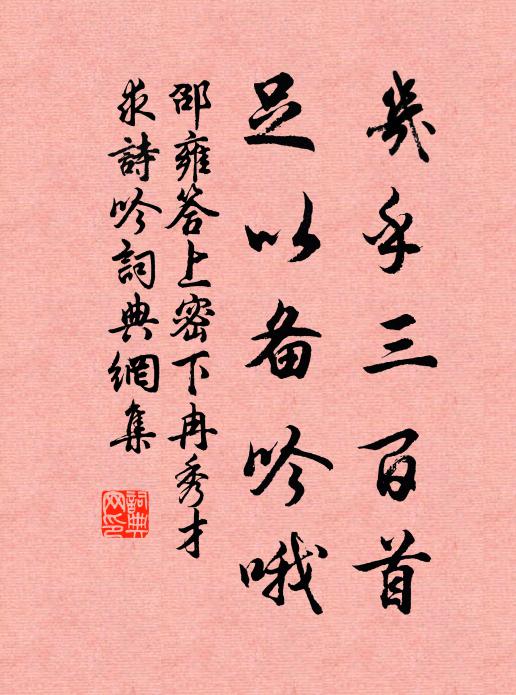 幾乎三百首
足以备吟哦
邵雍答上密下冉秀才
求詩吟詞典網集
詞典
网印